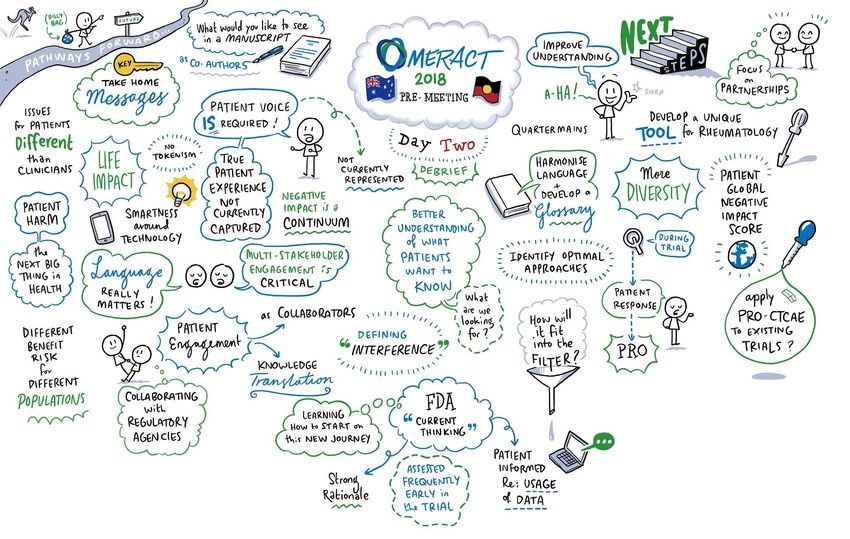 DILLY BAG
FUTURE
PATHWAYS FORWARD...
KEY
TAKE HOME
Messages
What would you like to see
in a MANUSCRIPT
as CO-AUTHORS
OMERACT
2018
PRE-MEETING
Day Two
DEBRIEF
IMPROVE
UNDERSTANDING
A-HA!
SNAP
QUARTERMAINS
NEXT
STEPS
FOCUS
on
PARTNERSHIPS
ISSUES
for PATIENTS
Different
than
CLINICIANS
LIFE
IMPACT
NO
TOKENISM
PATIENT VOICE
IS REQUIRED!
TRUE
PATIENT
EXPERIENCE
NOT
CURRENTLY
CAPTURED
NOT
CURRENTLY
REPRESENTED
NEGATIVE
IMPACT is a
CONTINUUM
PATIENT
HARM
the
NEXT BIG
THING in
HEALTH
SMARTNESS
around
TECHNOLOGY
Language
REALLY
MATTERS!
MULTI-STAKEHOLDER
ENGAGEMENT is
CRITICAL
DIFFERENT
BENEFIT
RISK
for
DIFFERENT
POPULATIONS
COLLABORATING
with
REGULATORY
AGENCIES
PATIENT
Engagement
as COLLABORATORS
KNOWLEDGE
Translation
BETTER
UNDERSTANDING
of WHAT
PATIENTS
WANT to
KNOW
What
are we
looking
for?
DEFINING
"INTERFERENCE"
LEARNING
HOW to START on
this NEW JOURNEY
FDA
"CURRENT
THINKING"
Strong
Rationale
ASSESSED
FREQUENTLY
EARLY in
the TRIAL
PATIENT
INFORMED
Re: USAGE
of DATA
HARMONISE
LANGUAGE
+
DEVELOP a
Glossary
IDENTIFY OPTIMAL
APPROACHES
How will
it fit
into the
FILTER?
DEVELOP a UNIQUE
TOOL for RHEUMATOLOGY
More
DIVERSITY
PATIENT
GLOBAL
NEGATIVE
IMPACT
SCORE
DURING
TRIAL
PATIENT
RESPONSE
PRO
apply
PRO-CTCAE
TO EXISTING
TRIALS?